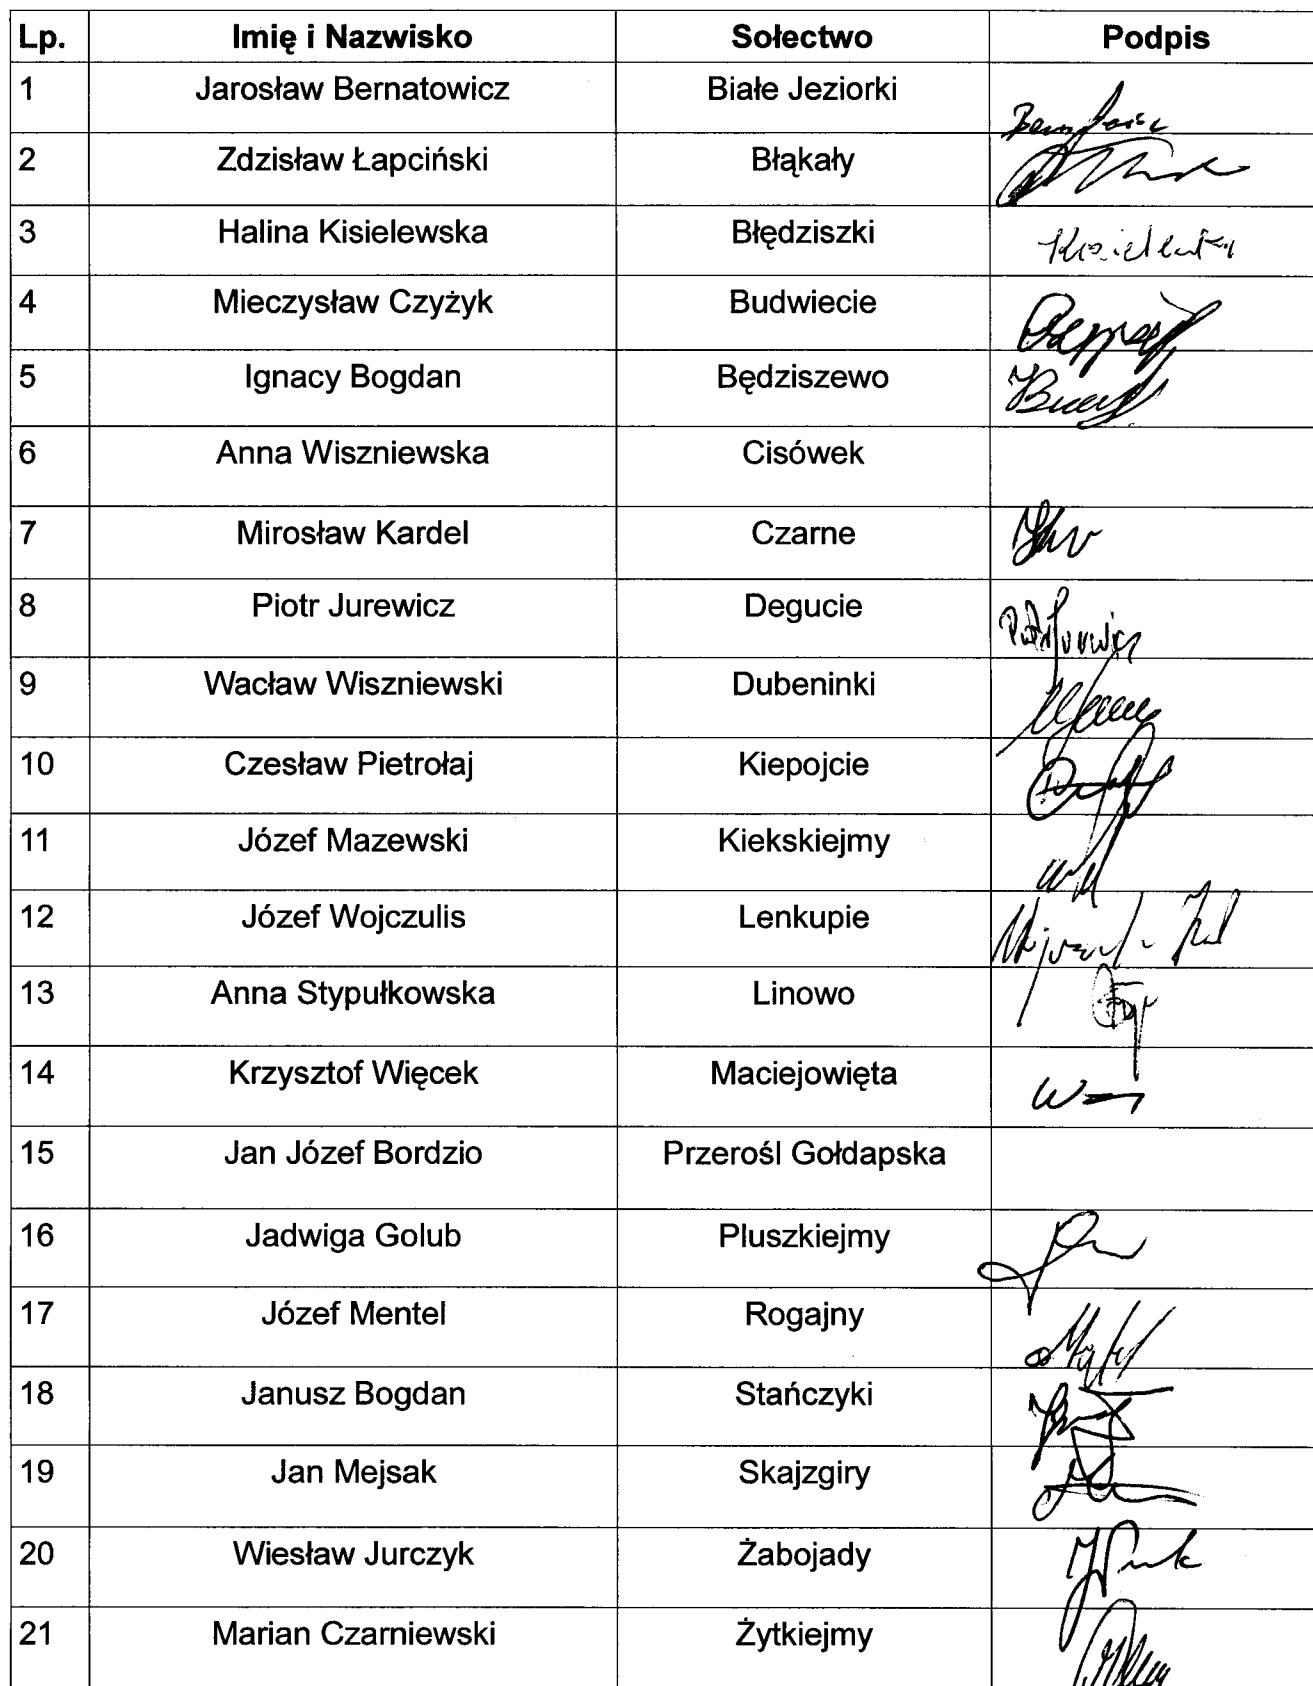 Lp. Imię i Nazwisko Sołectwo Podpis
1 Jarosław Bernatowicz Białe Jeziorki
2 Zdzisław Łapciński Błąkały
3 Halina Kisielewska Błędziszki
4 Mieczysław Czyżyk Budwiecie
5 Ignacy Bogdan Będziszewo
6 Anna Wiszniewska Cisówek
7 Mirosław Kardel Czarne
8 Piotr Jurewicz Degucie
9 Wacław Wiszniewski Dubeninki
10 Czesław Pietrołaj Kiepojcie
11 Józef Mazewski Kiekskiejmy
12 Józef Wojczulis Lenkupie
13 Anna Stypułkowska Linowo
14 Krzysztof Więcek Maciejowięta
15 Jan Józef Bordzio Przerośl Gołdapska
16 Jadwiga Golub Pluszkiejmy
17 Józef Mentel Rogajny
18 Janusz Bogdan Stańczyki
19 Jan Mejsak Skajzgiry
20 Wiesław Jurczyk Żabojady
21 Marian Czarniewski Żytkiejmy